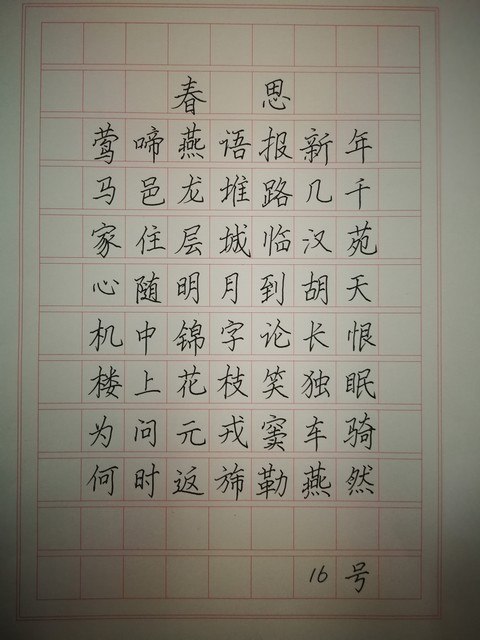 春思
莺啼燕语报新年
马邑龙堆路几千
家住层城临汉苑
心随明月到胡天
机中锦字论长恨
楼上花枝笑独眠
为问元戎窦车骑
何时返旆勒燕然
16号